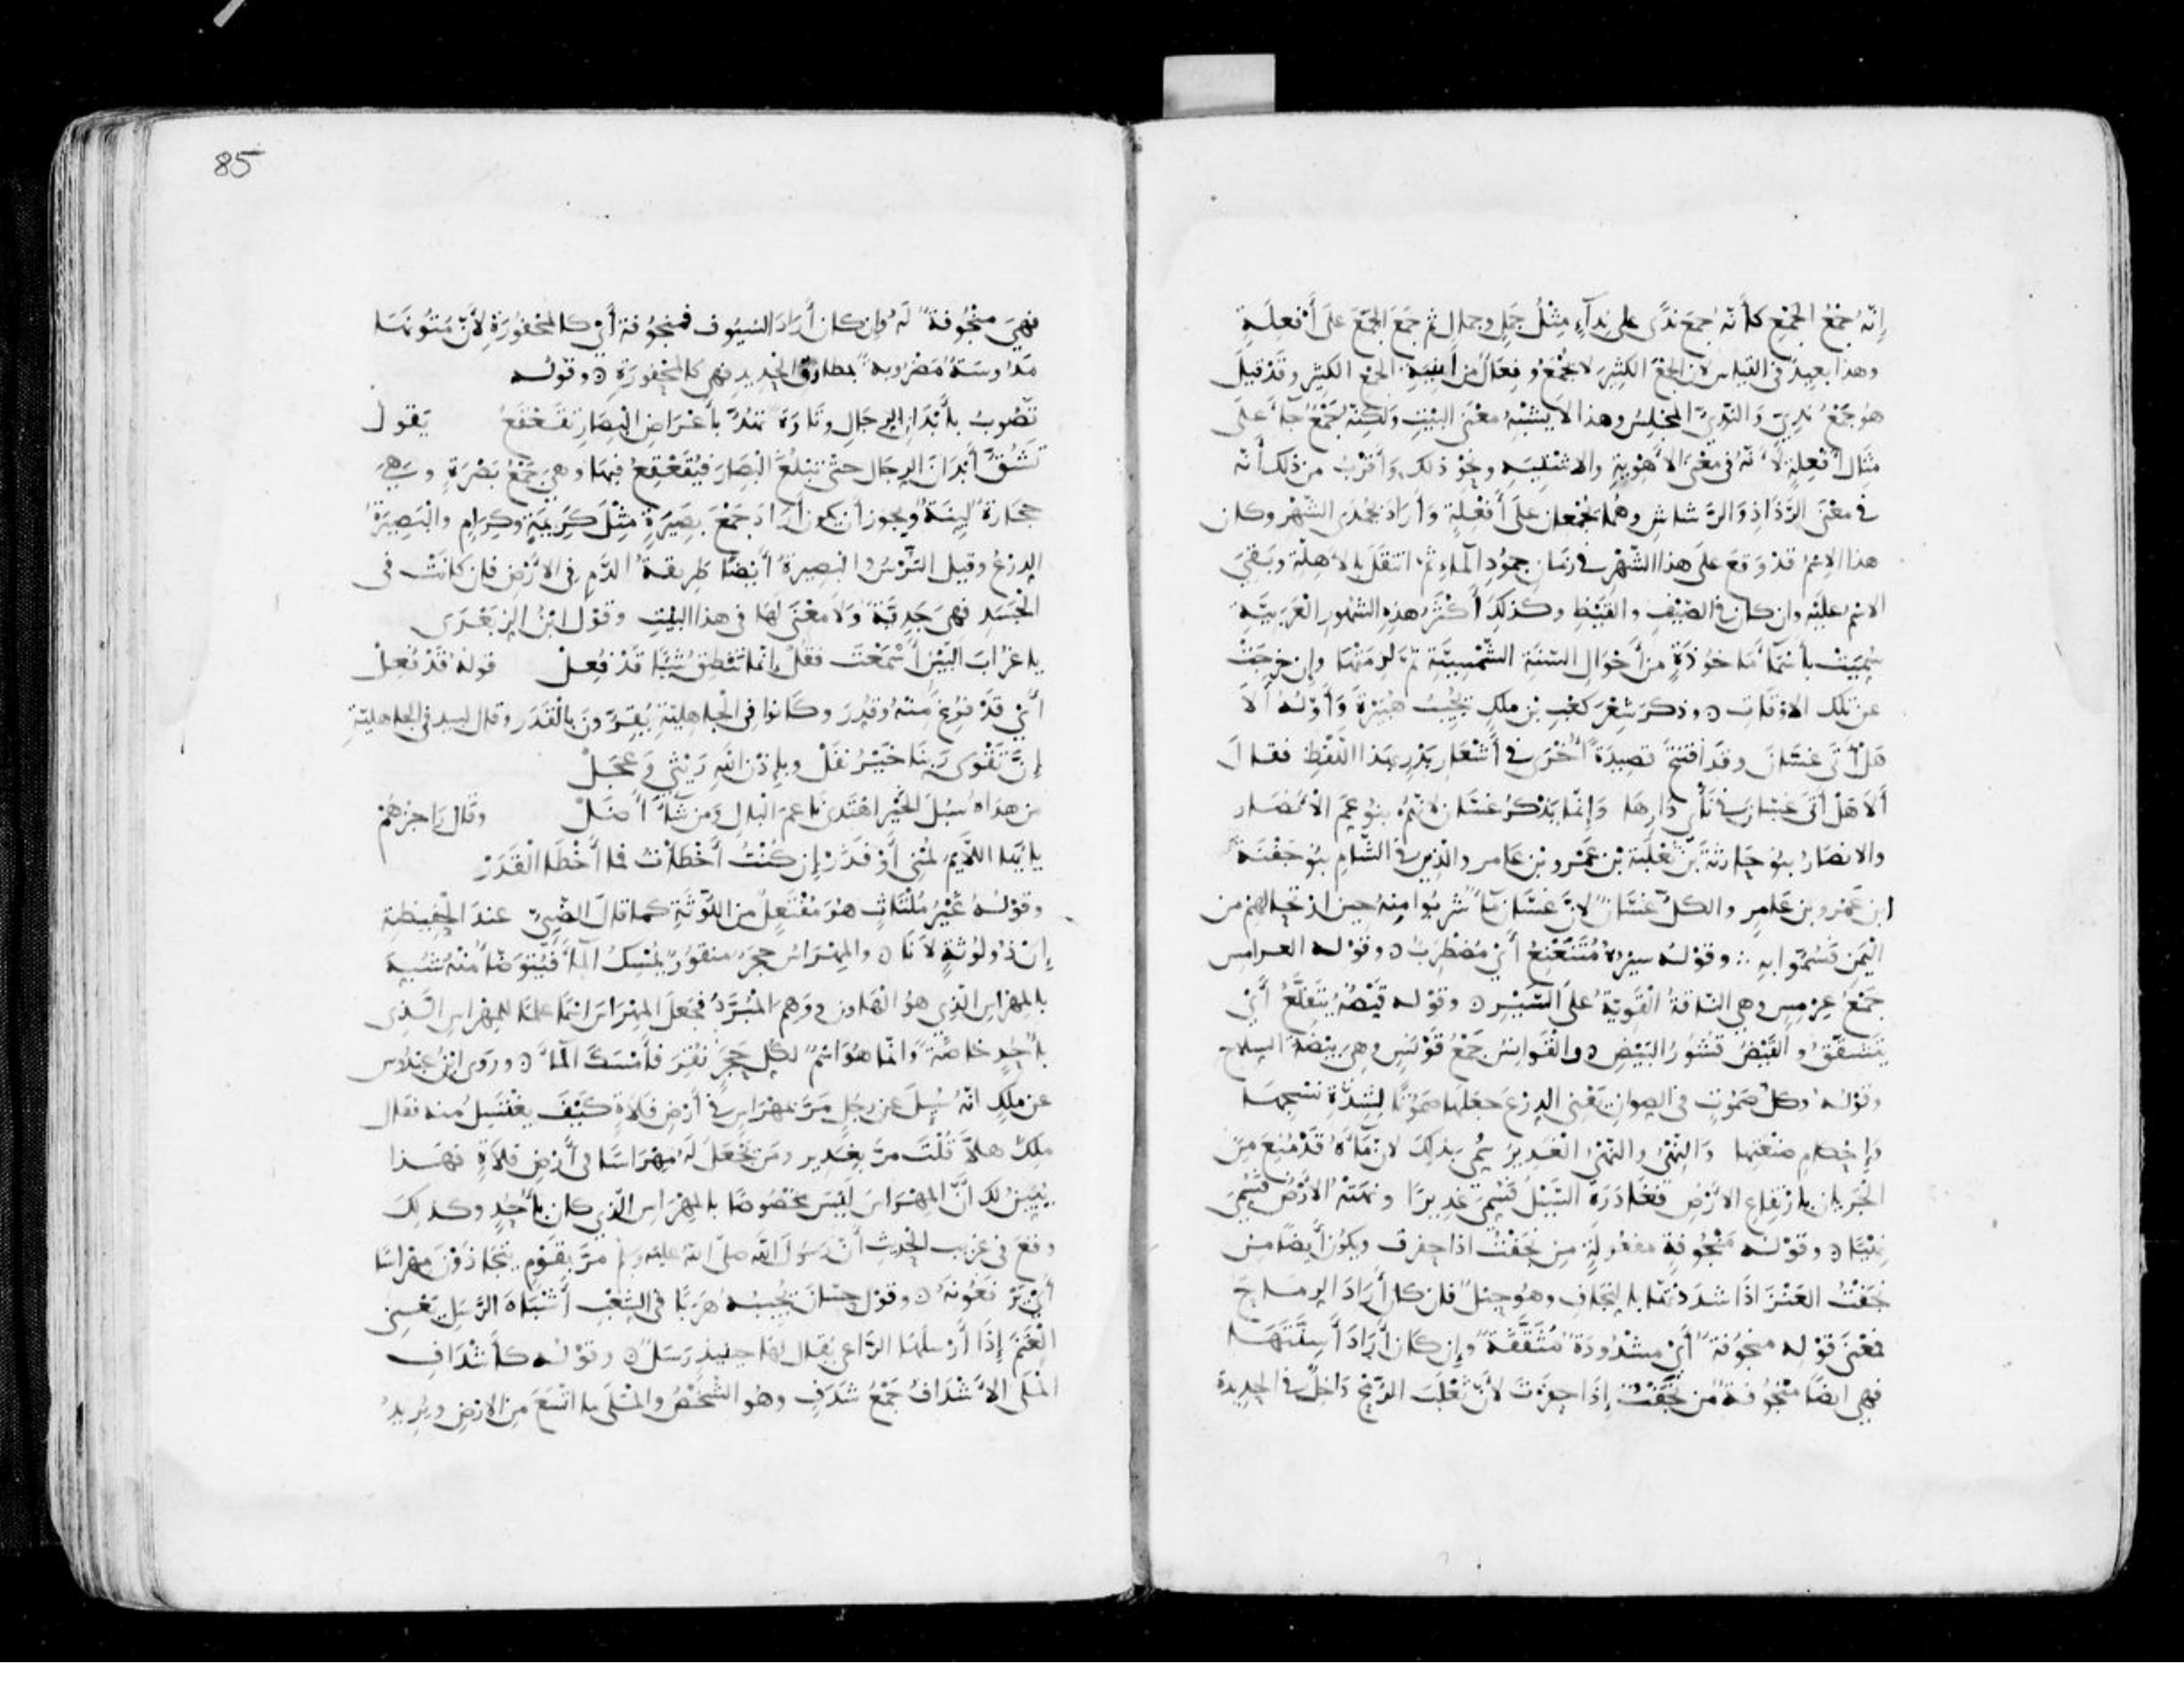 إنّه جَمْعُ الجَمْعِ كأنّه جمعَ نَدًى على نِدآءٍ مِثْلُ جَمَلٍ وجمالٍ ثم جَمَعَ الجَمْعَ عَلَى أَفْعِلَةٍ
وهذا بعيدٌ فى القياس لان الجمْعَ الكثيرَ لا يُجْمَعُ وفِعَالٌ من أبنيةِ الجمع الكثيرِ وقَدْ قيلَ
هُو جَمْعُ نَدِيّ وَالنّدِيّ المجْلِسُ وهذا لا يُشْبِهُ مَعْنَى البَيْتِ وَلَكِنّهُ جَمْعٌ جآءَ عَلَى
مثَالِ أفعِلَةٍ لأنّهُ فى مَعْنَى الأهْوِيَةِ والاشْتِيَةِ ونحْوِ ذلك وَأَقْرَبُ من ذلك أنّه
فى مَعْنَى الرّذَاذِ وَالرّشَاشِ وهُما يُجْمعان عَلَى أَفْعِلَةٍ وَأَرَادَ بجُمَدَى الشّهْرَ وكان
هذا الاِسْمُ قدْ وَقعَ عَلَى هذا الشّهْر فى زمَانِ جمُودِ المآءِ ثُمّ انتقَلَ بالأَهِلّةِ وبَقىَ
الاسْمُ عليْهِ وان كان فى الصّيْفِ والقَيْظِ وكذلكَ أكثَرُ هذه الشهُورِ العَرَبيّةِ
سُمِّيَتْ بأسْمَاءٍ مَأخُوذَةٍ من أَحْوَالِ السّنَةِ الشّمْسيّةِ ثم لزمَتْها وإن خرجَتْ
عن تلك الاوقات ⁘ وذكرَ شعْرَ كعْبِ بن ملك يجُيبُ هُبَيْرَةَ وَأوّلُهُ ألاَ
هَلْ أتَى غسّانَ وقَد افتتحَ قصِيدَةً أُخْرَى فى أشْعارِ بدْر بهَذا اللّفْظِ فقال
أَلاَ هَلْ أتَى غسّانَ فى نأْىِ دَارِهَا وَإنّما يَذْكرُ غسّان لانّهُمْ بنُو عمّ الأنصَار
والانصَارُ بنُو حَارثَةَ بنِ ثعْلَبَةَ بْن عَمْرو بْن عَامر والّذِين فى الشّامِ بنُو جَفْنَةَ
ابن عَمْرو بن عَامِرٍ والكلّ غسّانٌ لانّ غسّان مآءٌ شربُوا منه حين ارتحالهِمْ من
اليَمَنِ فسُمّوا به ⁘ وقوْلُه سيْرُهُ مُتَنَعْنِعُ أىْ مُضْطَرِبٌ ⁘ وقوْله العرامس
جمْعُ عِرْمِسٍ وهى النّاقةُ القَوِيّةُ عَلَى السّيْرِ ⁘ وقوْله قَيْضُهُ يتَقَلّعُ أَىْ
يَتشقّقُ والقَيْضُ قُشُورُ البَيْضِ ⁘ والقَوانِسُ جَمْعُ قَوْنَسٍ وهى بيْضَةُ السلاح
وقوْلُهُ وكلّ صَمُوتٍ فى الصِوانِ يَعْنى الدِرْعَ جعَلَها صَمُوتًا لشدّةِ نَسْجِهَا
وَإحْكام صَنْعَتِهَا وَالنِهْىُ والنَهْىُ الغَديرُ سُمّى بذلكَ لانّ مَآءَهُ قدْ مُنعَ مِنَ
الجَرَيانِ بارْتِفاعِ الارْضِ فغادَرَهُ السّيْلُ فسُمّىَ غديرًا ونهَتْهُ الأرْضُ فسُمّىَ
نِهْيًا ⁘ وقوْلُه مَنْجُوفَةٌ مفعُولَةٌ مِن نجَفْتُ اذا حفرت ويكُون أيضًا من
نجَفْتُ العَنْزَ اذا شدَدْتَها بالنِجَافِ وهُو حبْلٌ فان كان أَرَادَ الرماحَ
فمعْنَى قوْله منجُوفَةٌ أىْ مشْدُودَةٌ مُثَقّفَةٌ وإن كَانَ أَرَادَ أَسِنّتَها
فهى ايضًا مَنْجُوفَةٌ من نجَفْتُ إذَا حفَرْتَ لأَنّ ثعْلَبَ الرّمْحِ دَاخِلٌ فى الحديدة
85
فهِىَ منْجُوفَةٌ لَهُ وان كان أَرَادَ السُيُوف فمنجُوفة أىْ كالمَحْفُورَةِ لأنّ مُتُونَهَا
مَدْوسَةٌ مَضْرُوبةٌ بمطارق الحديد فهى كالمحْفورَةِ ⁘ وقوْله
تَصُوبُ بأبْدَانِ الرجَالِ وتَارَةً تمُرّ بأعْرَاضِ البِصَارِ تقَعْقَعُ يَقول
تَشُقّ أَبْدَانَ الرجَال حَتّى تبْلُغَ البِصَارَ فتُقعْقِعُ فيهَا وهى جَمْعُ بَصْرَةٍ وهِىَ
حجَارَةٌ ليّنَةٌ ويجوز أن يكون أَرَادَ جَمْعَ بصِيَرةٍ مِثْلَ كرِيمَةٍ وكِرَامٍ والبَصِيرَةُ
الدِرْعُ وقيل التُرْسُ والبَصِيرةُ أَيضًا طَرِيقةُ الدّمِ فى الارْضِ فان كانَتْ فى
الجَسَدِ فهى جَدِيّةٌ وَلاَ مَعْنَى لهَا فى هذا البَيْتِ وقوْل ابْنِ الزِبَعْرَى
يا غرابَ البَيْنِ أسْمَعْتَ فقُلْ إنّما تَنْطِقُ شيْئًا قَدْ فُعِلْ قوله قَدْ فُعِلْ
أَىْ قَدْ فُرِغَ مِنْهُ وقُدِرَ وكَانوا فى الجَاهِليّةِ يُقِرّونَ بالْقَدَرِ وقال لبيد فى الجاهليّةِ
إنّ تقْوَى رَبّنَا خَيْرُ نفَلْ وبإذْن اللّهِ رَيْثى وَعَجَلْ
من هَداهُ سُبُلَ الخَيْرِ اهْتَدى نَاعِمَ البَالِ وَمَن شآءَ أَضَلْ وقَال رَاجِزهُمْ
يا أيّها اللّائمُ لُمْنى أَوْ فَذَرْ إن كُنْتُ أخْطَأتُ فما أخْطَا الْقَدَرْ
وقوْلُهُ غَيْرُ مُلْتَاثٍ هُوَ مُفْتَعِلٌ من اللّوثَةِ كما قال الضّبّىّ عندَ الحَفيظةِ
إن ذُو لُوثَةٍ لَانَا ⁘ والمِهْرَاسُ حجَرٌ منقُورٌ يُمْسِكُ المآءَ فيُتوَضّأُ منْهُ شُبّهَ
بالمِهْرَاسِ الّذِى هُوَ الهَاوُن ووَهِمَ المُبَرّدُ فجعَلَ المِهْرَاسَ اسْمًا علمًا للمِهْراسِ الّذِى
بأُحُدٍ خاصّةً وانّما هُوَ اسْمٌ لكُلّ حَجَرٍ نُقِرَ فأمْسَكَ المآءَ ⁘ ورَوى ابْنُ عبْدُوس
عن ملكٍ انّهُ سُئِلَ عن رجُلٍ مَرّ بمِهْرَاسٍ فى أَرْضِ فَلاةٍ كَيْفَ يغْتَسِلُ منه فقال
ملِكٌ هلاّ قُلْتَ مرّ بغَدِيرٍ ومَن يجْعَلُ لَهُ مِهْرَاسًا فى أَرْضِ فلاةٍ فهَذا
يُبَيّنُ لك أنّ المِهْرَاسَ لَيْسَ مخْصُوصًا بالمِهْرَاسِ الّذِى كان بأُحُدٍ وكذلكَ
وقعَ فى غَريب الحَديث أنّ رَسُولَ اللّه صلّى اللّه عليْه وسلم مَرّ بقَوْمٍ يتَجَاذَوْنَ مِهْراسًا
أىْ يَرْفعُونَهُ ⁘ وقول حسّانَ يُجِيبُه هَرَبًا فى الشِعْبِ أَشْبَاهَ الرّسَل يَعْنِى
الغَنَمَ إذَا أَرْسَلَهَا الرّاعى يُقال لهَا حينئذ رَسَلٌ ⁘ وقوْله كأشْدَافِ
المَلاَ الأَشْدَافُ جَمْعُ شَدَفٍ وهُو الشّخْصُ والمَلاَ ما اتّسَعَ من الارْضِ ويُرِيدُ